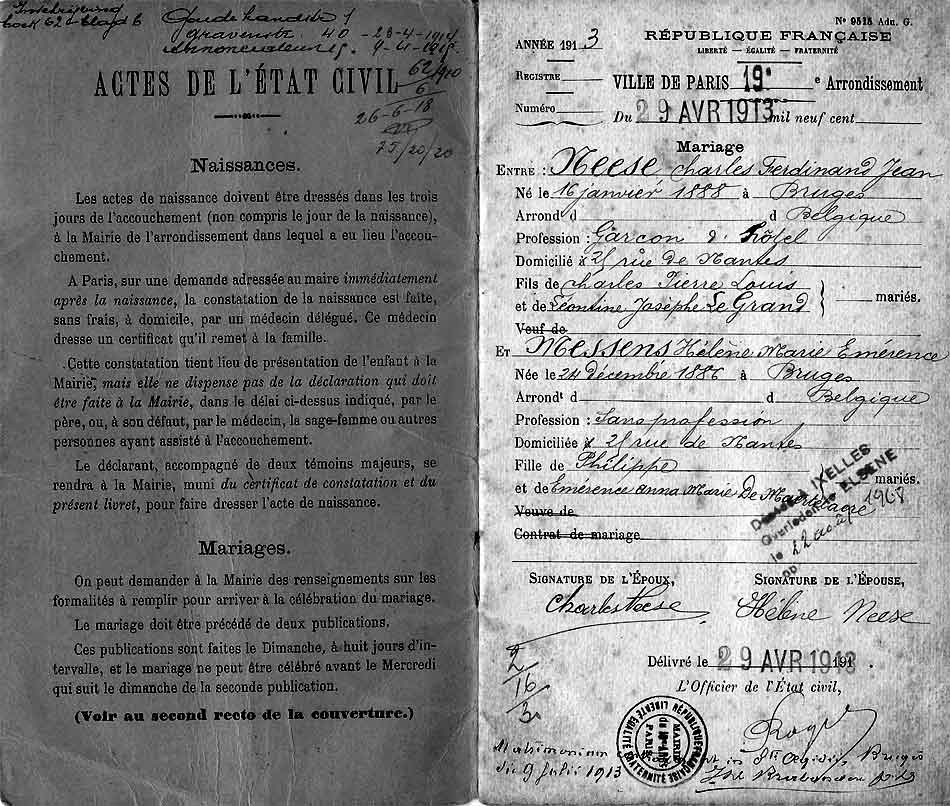 Inschrijving
boek 62 - blad 6
Oudekandste 1
gravenstr. 40 - 23-4-1914
Annonciadenstr. 9-4-1915
ACTES DE L'ÉTAT CIVIL
62/1910
6
26-6-18
75/20/20
Naissances.
Les actes de naissance doivent être dressés dans les trois
jours de l'accouchement (non compris le jour de la naissance),
à la Mairie de l'arrondissement dans lequel a eu lieu l'accou-
chement.
A Paris, sur une demande adressée au maire immédiatement
après la naissance, la constatation de la naissance est faite,
sans frais, à domicile, par un médecin délégué. Ce médecin
dresse un certificat qu'il remet à la famille.
Cette constatation tient lieu de présentation de l'enfant à la
Mairie, mais elle ne dispense pas de la déclaration qui doit
être faite à la Mairie, dans le délai ci-dessus indiqué, par le
père, ou, à son défaut, par le médecin, la sage-femme ou autres
personnes ayant assisté à l'accouchement.
Le déclarant, accompagné de deux témoins majeurs, se
rendra à la Mairie, muni du certificat de constatation et du
présent livret, pour faire dresser l'acte de naissance.
Mariages.
On peut demander à la Mairie des renseignements sur les
formalités à remplir pour arriver à la célébration du mariage.
Le mariage doit être précédé de deux publications.
Ces publications sont faites le Dimanche, à huit jours d'in-
tervalle, et le mariage ne peut être célébré avant le Mercredi
qui suit le dimanche de la seconde publication.
(Voir au second recto de la couverture.)
No 9515 Adm. G.
RÉPUBLIQUE FRANÇAISE
LIBERTÉ — ÉGALITÉ — FRATERNITÉ
ANNÉE 1913
REGISTRE
VILLE DE PARIS 19e e Arrondissement
Numéro
Du 29 AVR 1913 mil neuf cent
Mariage
ENTRE : Neese Charles Ferdinand Jean
Né le 16 janvier 1888 à Bruges
Arrond d d Belgique
Profession : Garçon d'hôtel
Domicilié à 25 rue de Nantes
Fils de Charles Pierre Louis
et de Léontine Josèphe Le Grand
mariés.
Veuf de
ET Messens Hélène Marie Emérence
Née le 24 décembre 1886 à Bruges
Arrondt d d Belgique
Profession : Sans profession
Domiciliée à 25 rue de Nantes
Fille de Philippe
et de Emérence Anna Marie De
mariés.
Veuve de
Contrat de mariage
IXELLES
Overleden te ELSENE
le 22 1968
SIGNATURE DE L'ÉPOUX,
SIGNATURE DE L'ÉPOUSE,
Charles Neese
Hélène Neese
2
16
3
Délivré le 29 AVR 1913 191
L'Officier de l'État civil,
RÉPUBLIQUE FRANÇAISE LIBERTÉ ÉGALITÉ FRATERNITÉ
MAIRIE
PARIS
Matrimonium in Sti Aegidii Brugis
die 9 Julii 1913